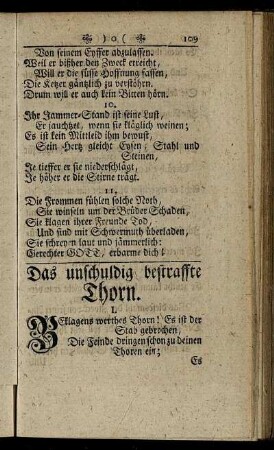 ) o ( 109
Von seinem Eyffer abzulassen.
Weil er bißher den Zweck erreicht,
Will er die süsse Hoffnung fassen,
Die Ketzer gäntzlich zu verstöhrn.
Drum will er auch kein Bitten hörn.
10.
Ihr Jammer-Stand ist seine Lust,
Er jauchtzet, wenn sie kläglich weinen;
Es ist kein Mittleid ihm bewust,
Sein Hertz gleicht Eysen, Stahl und
Steinen,
Je tieffer er sie niederschlägt,
Je höher er die Stirne trägt.
11.
Die Frommen fühlen solche Noth,
Sie winseln um der Brüder Schaden,
Sie klagen ihrer Freunde Tod,
Und sind mit Schwermuth überladen,
Sie schreyen laut und jämmerlich:
Gerechter GOTT, erbarme dich!
Das unschuldig bestraffte
Thorn.
1.
BEklagens werthes Thorn! Es ist der
Stab gebrochen,
Die Feinde dringen schon zu deinen
Thoren ein;
Es